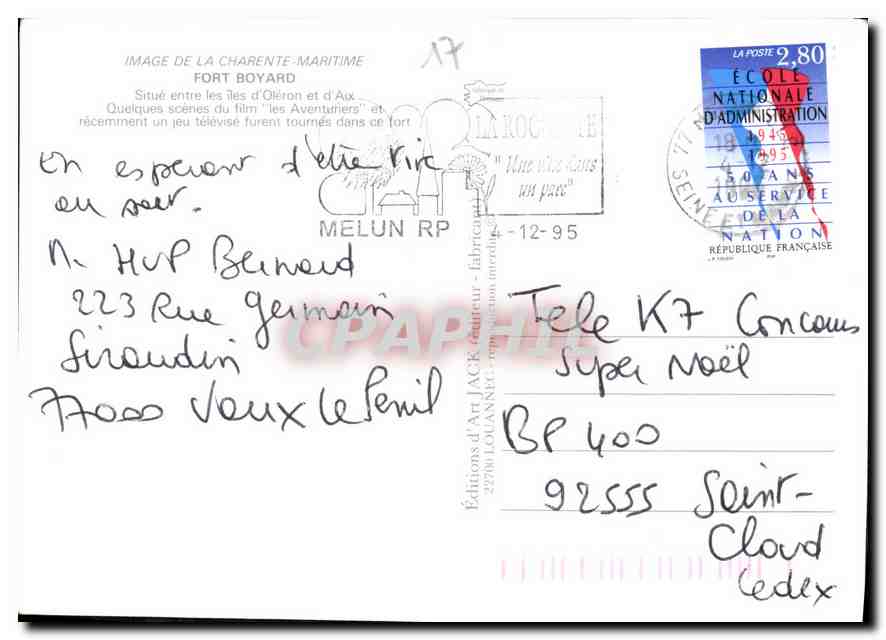 17
IMAGE DE LA CHARENTE-MARITIME
FORT BOYARD
Situé entre les îles d'Oléron et d'Aix
Quelques scènes du film "les Aventuriers" et
récemment un jeu télévisé furent tournés dans ce fort
En esperant d'être tiré
au sort.
M. HUP Bernard
223 Rue Germain
Siraudin
77000 Vaux le Penil
"Une ville dans
un parc"
MELUN RP 4-12-95
Éditions d'Art JACK (éditeur - fabricant)
22700 LOUANNEC - reproduction interdite
LA POSTE 2,80
ÉCOLE
NATIONALE
D'ADMINISTRATION
1945
1995
50 ANS
AU SERVICE
DE LA
NATION
RÉPUBLIQUE FRANÇAISE
77
SEINE ET
Tele K7 Concours
Super Noël
BP 400
92555 Saint-
Cloud
Cedex
CPAPHIL